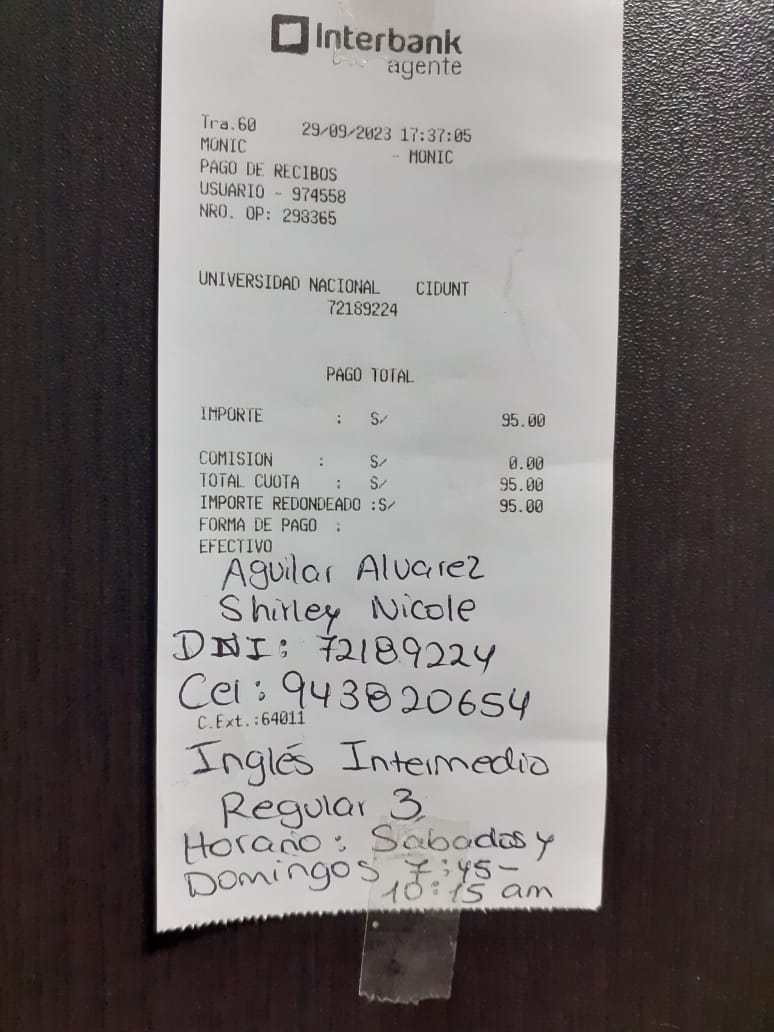 Interbank
agente
Tra.60 29/09/2023 17:37:05
MONIC - MONIC
PAGO DE RECIBOS
USUARIO - 974558
NRO. OP: 293365
UNIVERSIDAD NACIONAL CIDUNT
72189224
PAGO TOTAL
IMPORTE : S/ 95.00
COMISION : S/ 0.00
TOTAL CUOTA : S/ 95.00
IMPORTE REDONDEADO :S/ 95.00
FORMA DE PAGO :
EFECTIVO
Aguilar Alvarez
Shirley Nicole
DNI: 72189224
Cel: 943820654
C.Ext.:64011
Inglés Intermedio
Regular 3
Horario: Sabados y
Domingos 7:45-
10:15 am